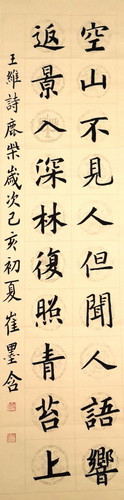 空山不見人但聞人語響
返景入深林復照青苔上
王維詩鹿柴歲次己亥初夏崔墨含